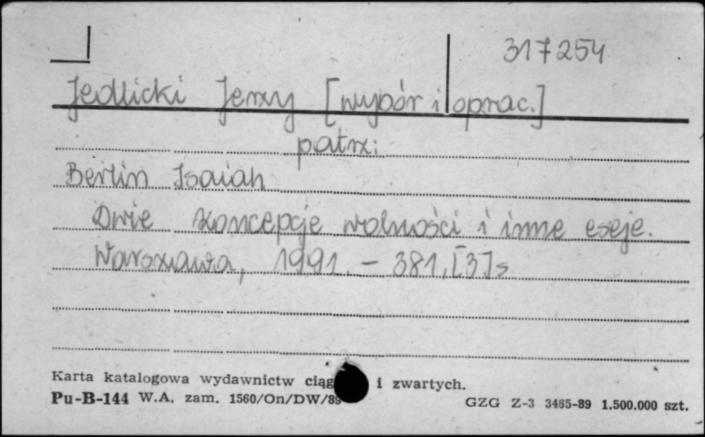 317254
Jedlicki Jerzy [wybór i oprac.]
patrz:
Berlin Isaiah
Dwie koncepcje wolności i inne eseje.
Warszawa, 1991. - 381,[3]s
Karta katalogowa wydawnictw ciąg i zwartych.
Pu-B-144 W.A. zam. 1560/On/DW/89
GZG Z-3 3465-89 1.500.000 szt.